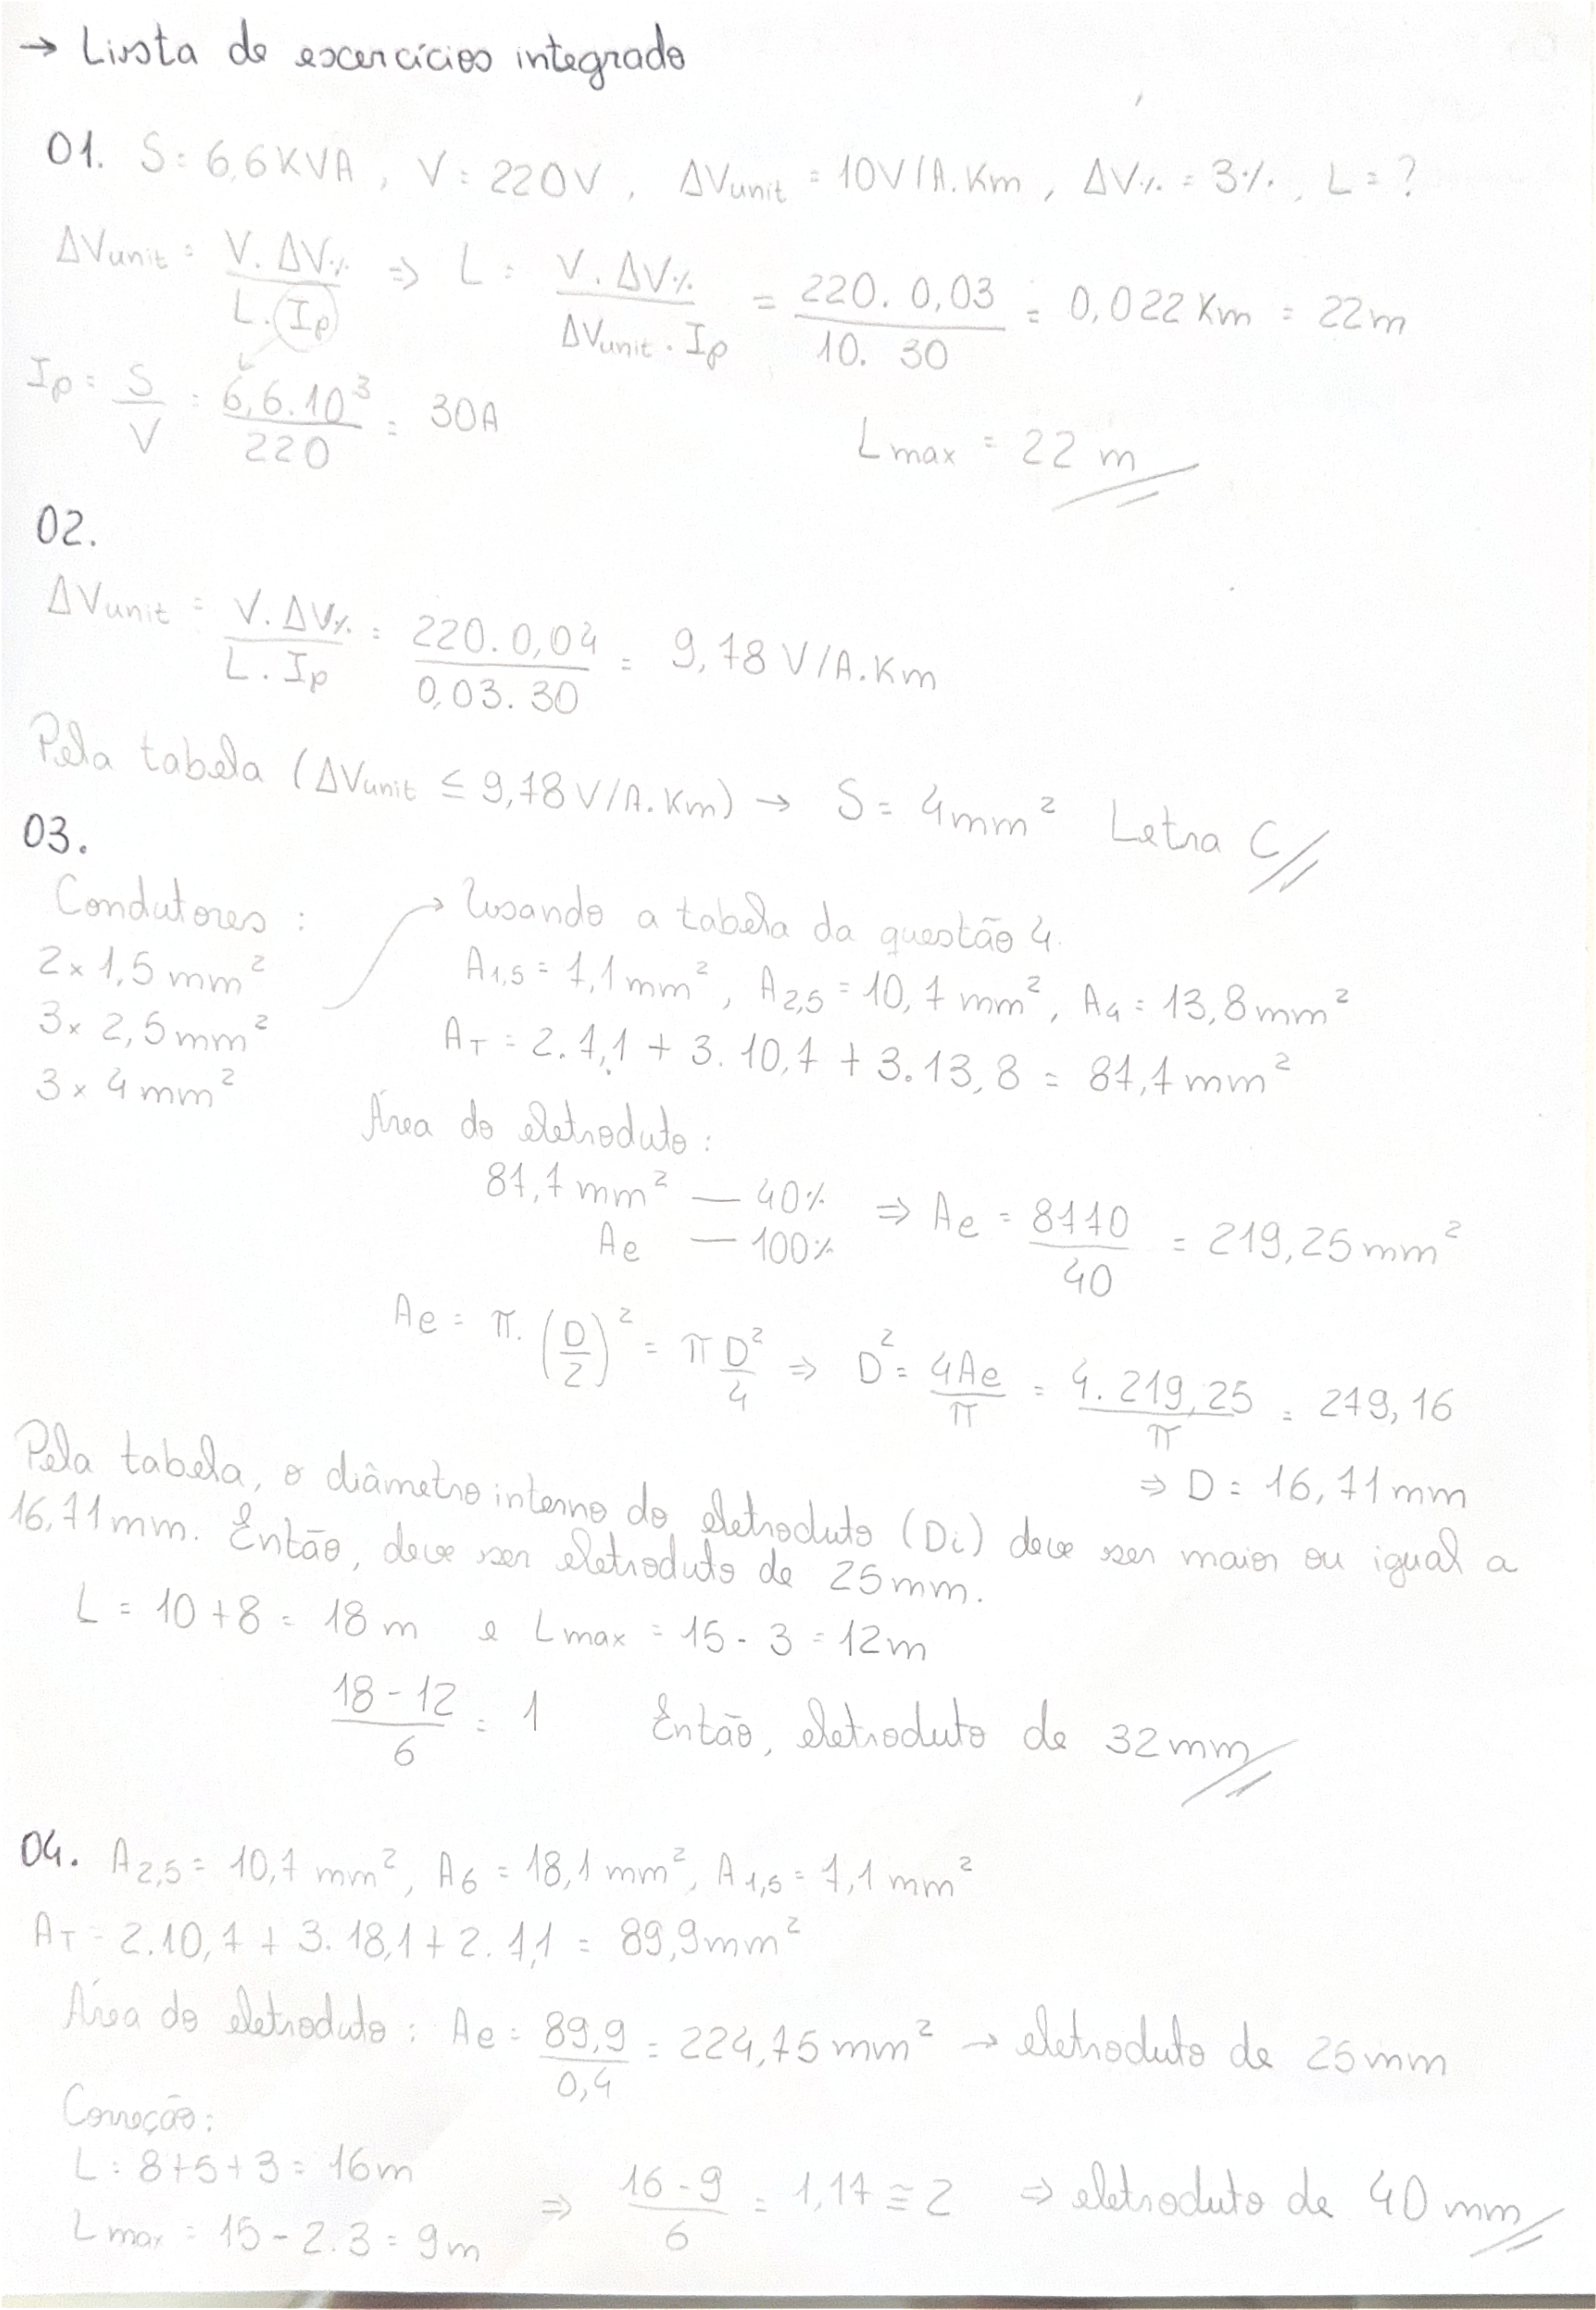 → Lista de excercícios integrado
01. S = 6,6KVA , V = 220V , ΔVunit = 10V/A.Km , ΔV% = 3% , L = ?
ΔVunit = V.ΔV% / L.Ip ⇒ L = V.ΔV% / ΔVunit.Ip = 220.0,03 / 10.30 = 0,022 Km = 22m
Ip = S / V = 6,6.10³ / 220 = 30A
Lmax = 22 m
02.
ΔVunit = V.ΔV% / L.Ip = 220.0,04 / 0,03.30 = 9,78 V/A.Km
Pela tabela (ΔVunit ≤ 9,78 V/A.Km) → S = 4mm² Letra C
03.
Condutores : → Usando a tabela da questão 4.
2x 1,5 mm²
3x 2,5 mm²
3x 4 mm²
A1,5 = 7,1mm², A2,5 = 10,7 mm², A4 = 13,8mm²
AT = 2.7,1 + 3.10,7 + 3.13,8 = 87,7mm²
Área do eletroduto:
87,7mm² — 40% ⇒ Ae = 8770 / 40 = 219,25mm²
Ae — 100%
Ae = π.(D/2)² = πD²/4 ⇒ D² = 4Ae / π = 4.219,25 / π = 279,16
⇒ D = 16,71mm
Pela tabela, o diâmetro interno do eletroduto (Di) deve ser maior ou igual a
16,71mm. Então, deve ser eletroduto de 25mm.
L = 10+8 = 18m e Lmax = 15-3 = 12m
18-12 / 6 = 1 Então, eletroduto de 32mm
04. A2,5 = 10,7 mm², A6 = 18,1mm², A1,5 = 7,1mm²
AT = 2.10,7 + 3.18,1 + 2.7,1 = 89,9mm²
Área do eletroduto: Ae = 89,9 / 0,4 = 224,75mm² → eletroduto de 25mm
Correção:
L = 8+5+3 = 16m
Lmax = 15-2.3 = 9m
⇒ 16-9 / 6 = 1,17 ≅ 2 ⇒ eletroduto de 40mm